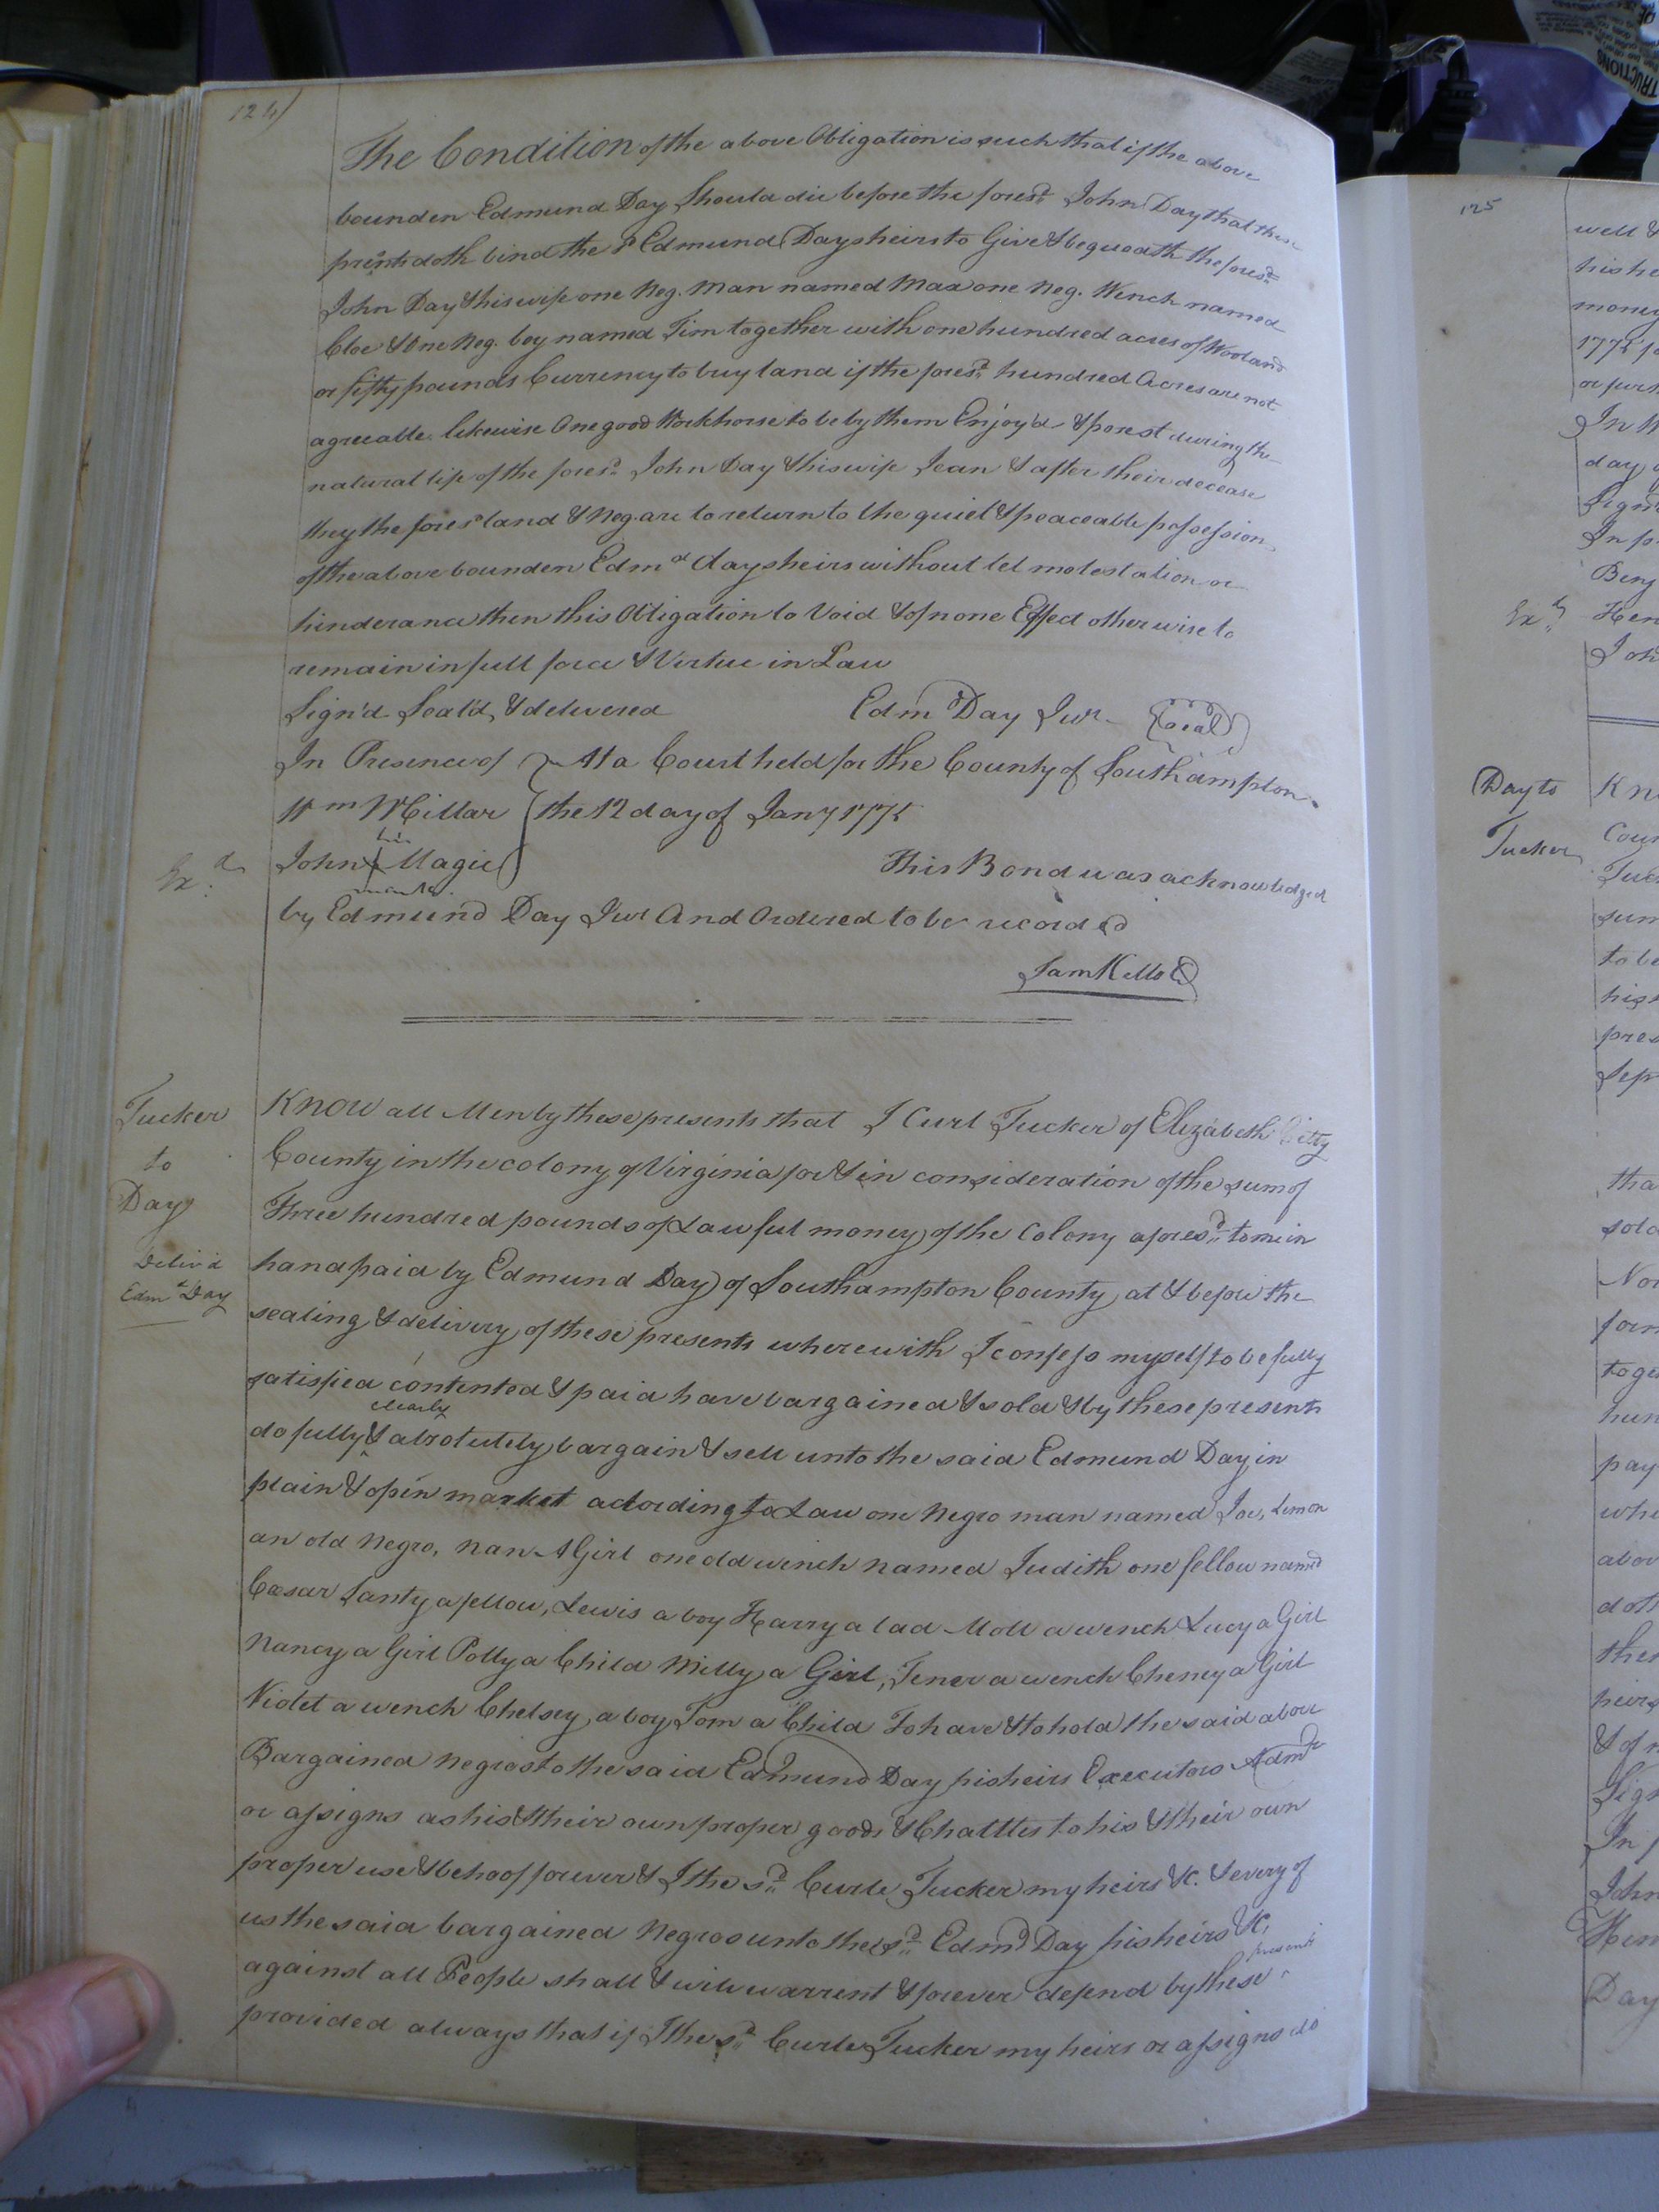 124
The Condition of the above Obligation is such that if the above
bounden Edmund Day Should die before the foresd. John Day that these
presents doth bind the sd Edmund Days heirs to Give & bequeath the foresd.
John Day & his wife one Neg. Man named Max one Neg. Wench named
Cloe & One Neg. boy named Tim together with one hundred acres of Wooland
or fifty pounds Currency to buy land if the foresd. hundred Acres are not
agreeable likewise One good Workhorse to be by them Enjoy'd & posest during the
natural life of the foresd. John Day & his wife Jean & after their decease
they the foresd land & Neg. are to return to the quiet & peaceable possession
of the above bounden Edmd days heirs without let molestation or
hinderance then this Obligation to Void & of none Effect otherwise to
remain in full force & Virtue in Law
Sign'd Seal'd, & delivered Edm Day Jur. Seal
In Presence of At a Court held for the County of Southampton
Wm Millar the 12 day of Jany 1775
Exd. John his mark Magie This Bond was acknowledged
by Edmund Day Jur And Ordered to be recorded
Sam Kello
Tucker
to
Day
Deliv'd
Edmd Day
Know all Men by these presents that I Curl Tucker of Elizabeth Citty
County in the colony of Virginia for & in consideration of the sum of
Three hundred pounds of Lawful money of the Colony aforesd. to me in
hand paid by Edmund Day of Southampton County at & before the
sealing & delivery of these presents wherewith I confess myself to be fully
satisfied contented & paid have bargained & sold & by these presents
do fully clearly & absolutely bargain & sell unto the said Edmund Day in
plain & open market according to Law one Negro man named Joe, Lemon
an old Negro, Nan A Girl one old wench named Judith one fellow named
Cæsar Santy a fellow, Lewis a boy Harry a lad Moll a wench Lucy a Girl
Nancy a Girl Polly a Child Milly a Girl, Tener a wench Cheney a Girl
Violet a wench Chelsey a boy Tom a Child To have & to hold the said above
Bargained Negros to the said Edmund Day his heirs Executors Admrs
or assigns as his & their own proper goods & Chattles to his & their own
proper use & behoof forever & I the sd. Curle Tucker my heirs &c. & every of
us the said bargained Negros unto the sd. Edmd Day his heirs &c,
against all People shall & will warrent & forever defend by these presents
provided always that if I the sd. Curle Tucker my heirs or assigns do
125
well &
money
In
day
In p
Exd.
Day to
Tucker
Kn
Coun
Tuc
sum
to be
his
pres
Sep
tha
sold
form
toge
hun
pay
abov
doth
heirs
& of n
In p
John
Day